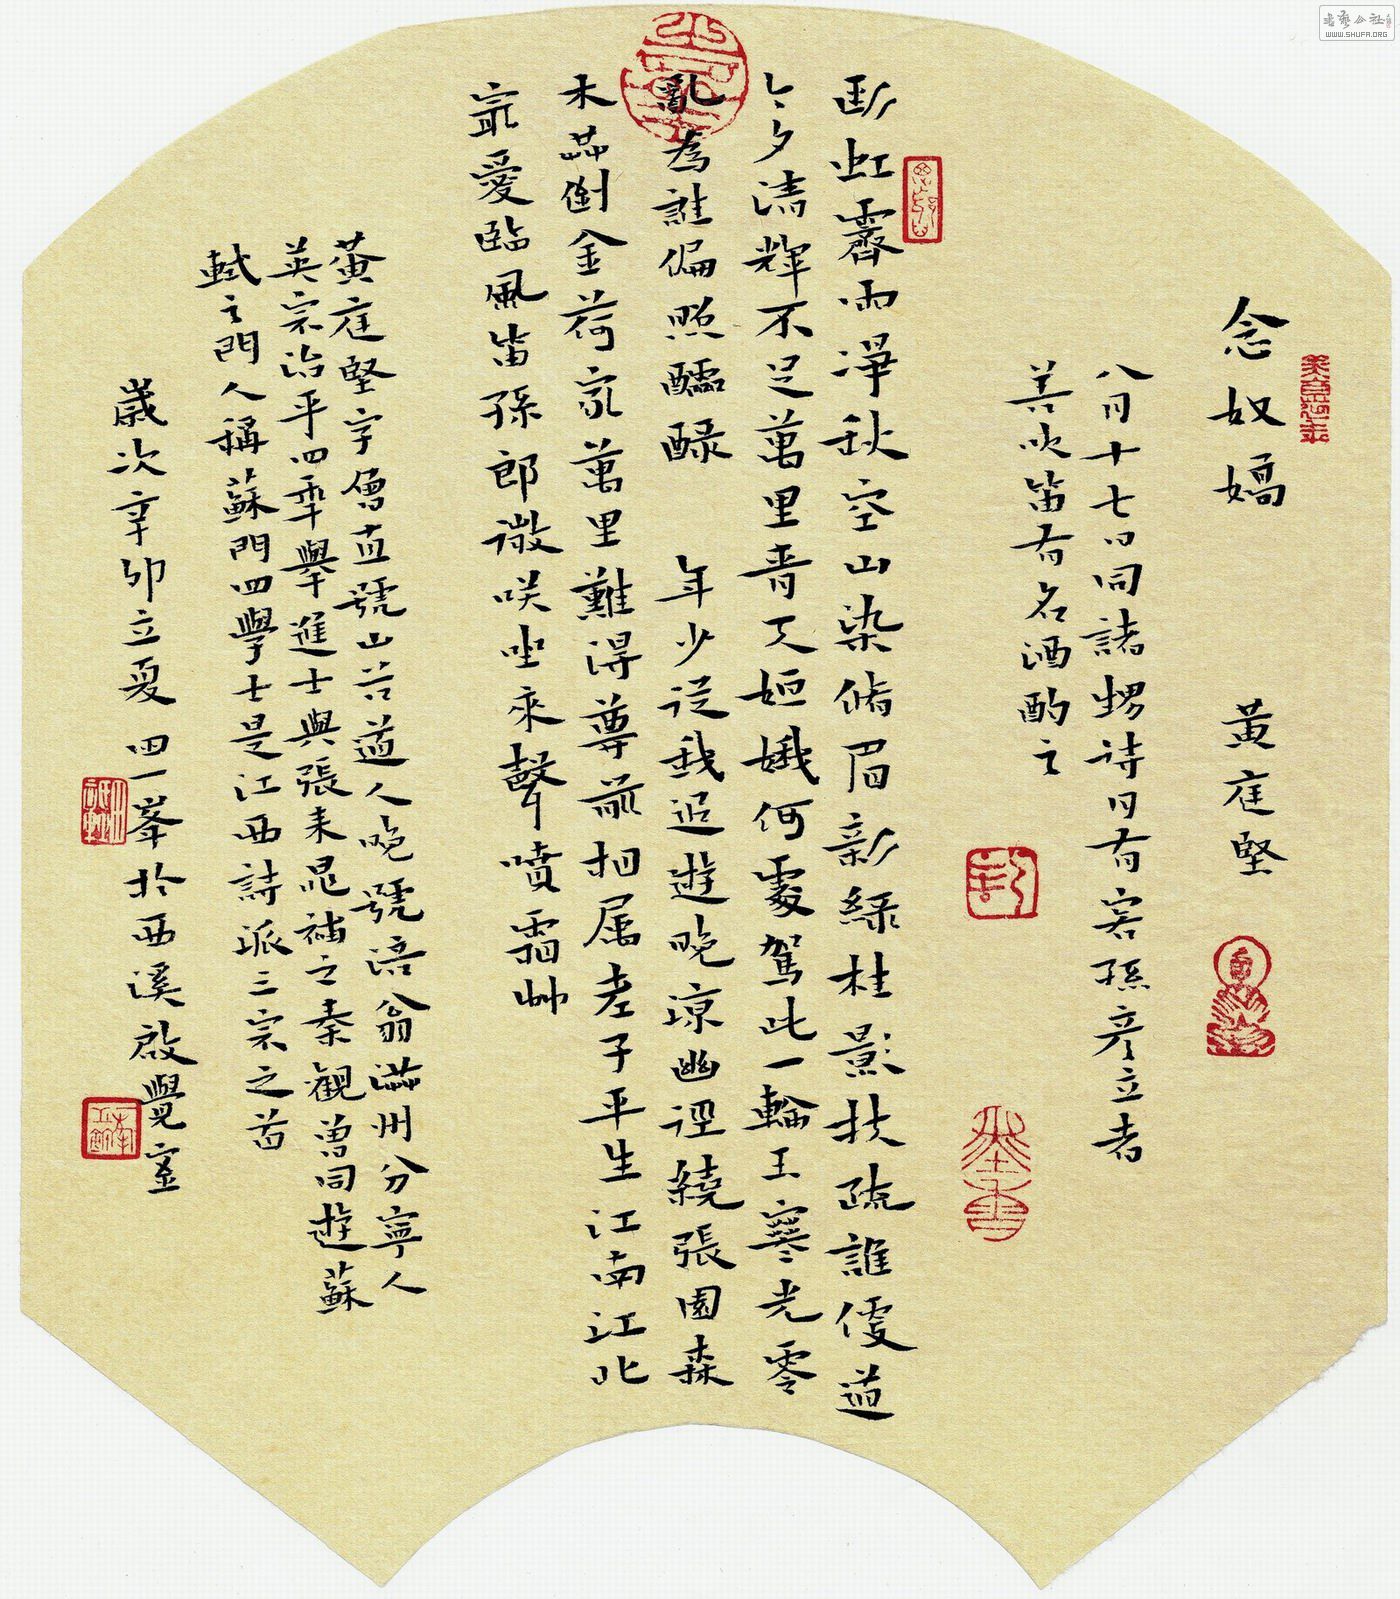 念奴嬌 黄庭堅
八月十七日同諸甥詩曰有客孫彦立者
善吹笛有名酒酌之
斷虹霽雨淨秋空山染脩眉新緑桂影扶疏誰便道
今夕清輝不足萬里青天姮娥何處駕此一輪玉寒光零
亂為誰偏照醽醁 年少從我追遊晚凉幽逕繞張園森
木共倒金荷家萬里難得尊前相属老子平生江南江北
最愛臨風笛孫郎微咲坐來聲噴霜竹
黄庭堅字魯直號山谷道人晚號涪翁洪州分寧人
英宗治平四年舉進士與張耒晁補之秦觀曾同遊蘇
軾之門人稱蘇門四學士是江西詩派三宗之首
歲次辛卯立夏四一峯於西溪啟覺室
書藝公社
WWW.SHUFA.ORG